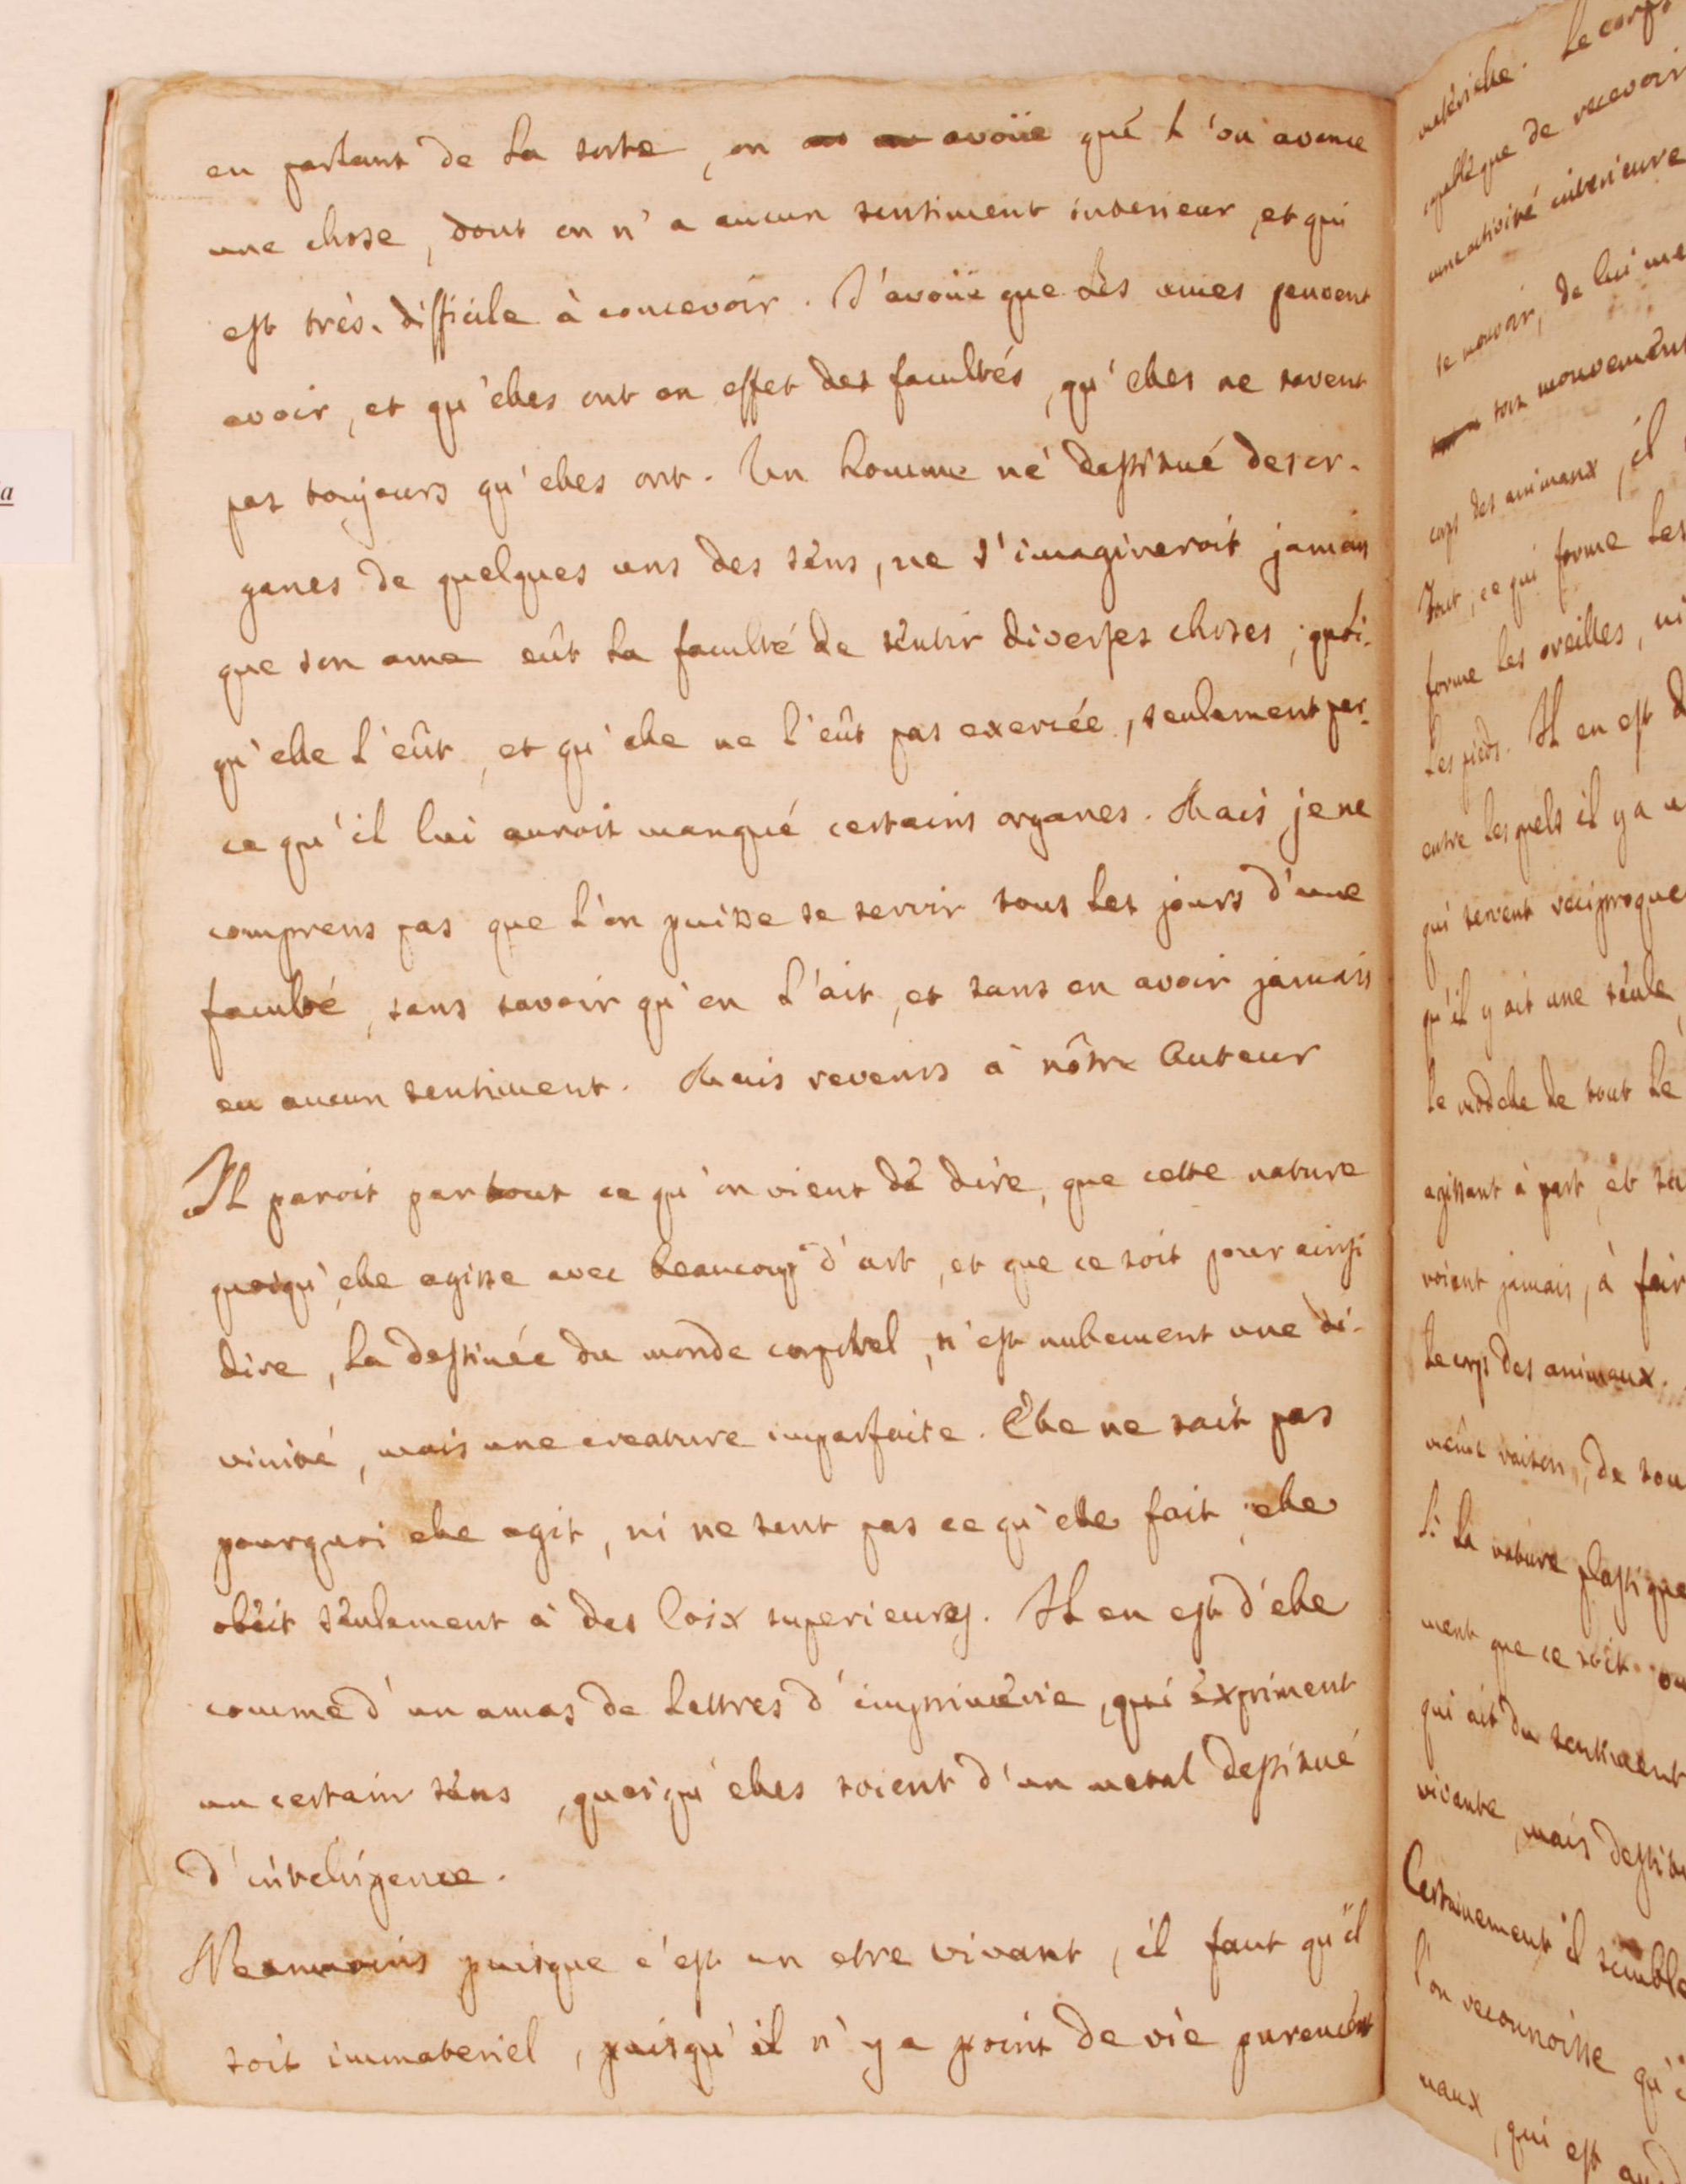 en parlant de la sorte, on avoüe que l'on avance
une chose, dont on n'a aucun sentiment interieur, et qui
est très-difficile à concevoir. J'avoüe que les ames peuvent
avoir, et qu'elles ont en effet des facultés, qu'elles ne savent
pas toujours qu'elles ont. Un homme né destitué des or-
ganes de quelques uns des sens, ne s'imagineroit jamais
que son ame eût la faculté de sentir diverses choses, quoi-
qu'elle l'eût, et qu'elle ne l'eût pas exercée, seulement par-
ce qu'il lui auroit manqué certains organes. Mais je ne
comprens pas que l'on puisse se servir tous les jours d'une
faculté, sans savoir qu'on l'ait, et sans en avoir jamais
eu aucun sentiment. Mais revenons à nôtre Auteur
Il paroit par tout ce qu'on vient de dire, que cette nature
quoiqu'elle agisse avec beaucoup d'art, et que ce soit pour ainsi
dire, la destinée du monde corporel, n'est nullement une di-
vinité, mais une creature imparfaite. Elle ne sait pas
pourquoi elle agit, ni ne sent pas ce qu'elle fait, elle
obéit seulement à des loix superieures. Il en est d'elle
comme d'un amas de lettres d'imprimérie, qui expriment
un certain sens, quoiqu'elles soient d'un metal destitué
d'intelligence.
Neanmoins puisque c'est un etre vivant, il faut qu'il
soit immateriel, puisqu'il n'y a point de vie purement
materielle. Le corps
que de recevoir
une activité interieure
se mouvoir, de lui me
son mouvement
corps des animaux, il
Tout, ce qui forme les
forme les oreilles, ni
les pieds. Il en est d
entre lesquels il y a u
qui servent reciproque
qu'il y ait une seule
le modelle de tout le
agissant à part et sa
voient jamais, à fair
le corps des animaux.
même raison, de sou
Si la nature plastique
ment que ce soit ou
qui ait du sentiment
vivante, mais destitu
Certainement il semble
l'on reconnoisse qu'i
maux, qui est
a